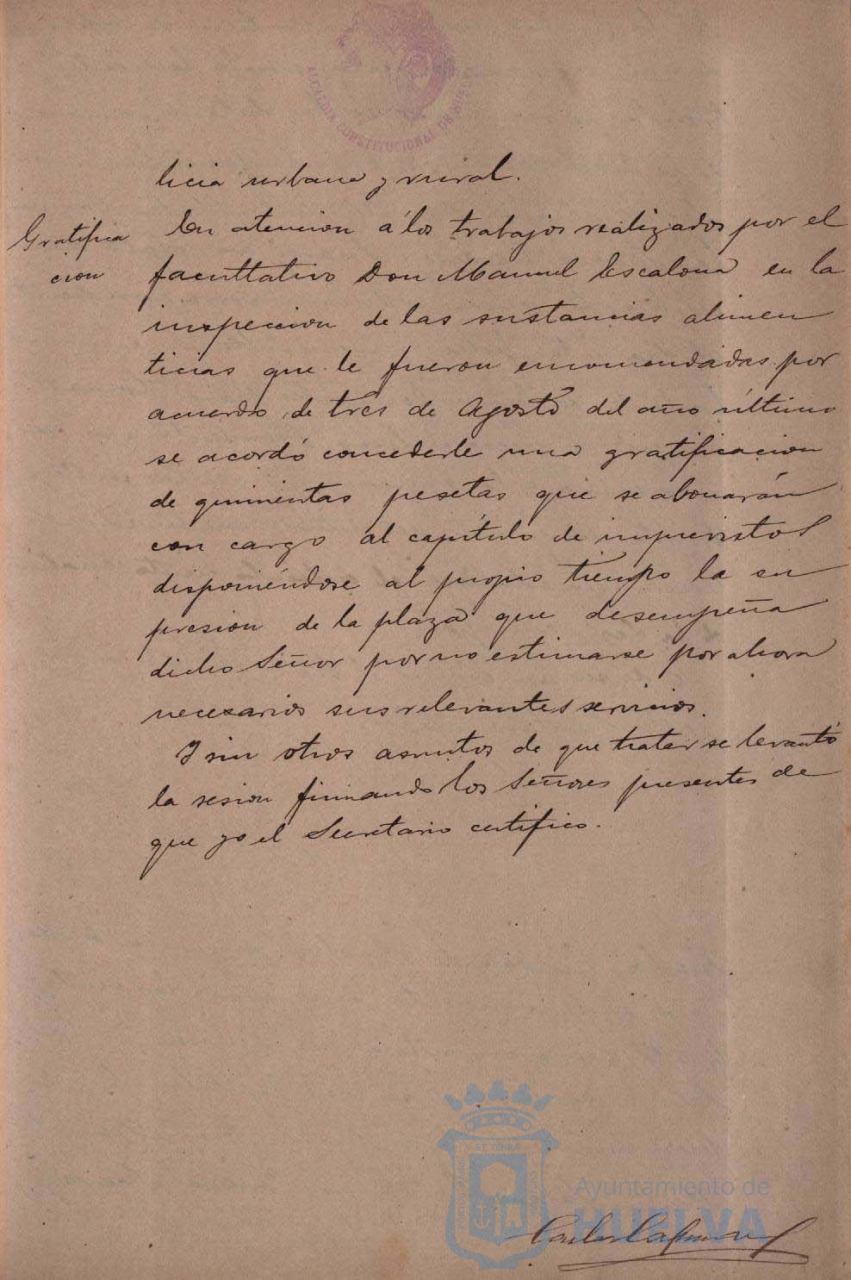 ALCALDIA CONSTITUCIONAL DE HUELVA
licia urbana y rural.
Gratifica
cion
En atencion á los trabajos realizados por el
facultativo Don Manuel Escalona en la
inspeccion de las sustancias alimen
ticias que le fueron encomendadas por
acuerdo de tres de Agosto del año último
se acordó concederle una gratificacion
de quinientas pesetas que se abonarán
con cargo al capítulo de imprevistos
disponiéndose al propio tiempo la su
presion de la plaza que desempeña
dicho Señor por no estimarse por ahora
necesarios sus relevantes servicios.
Y sin otros asuntos de que tratar se levantó
la sesion firmando los Señores presentes de
que yo el Secretario certifico.
Ayuntamiento de
HUELVA
Carlos